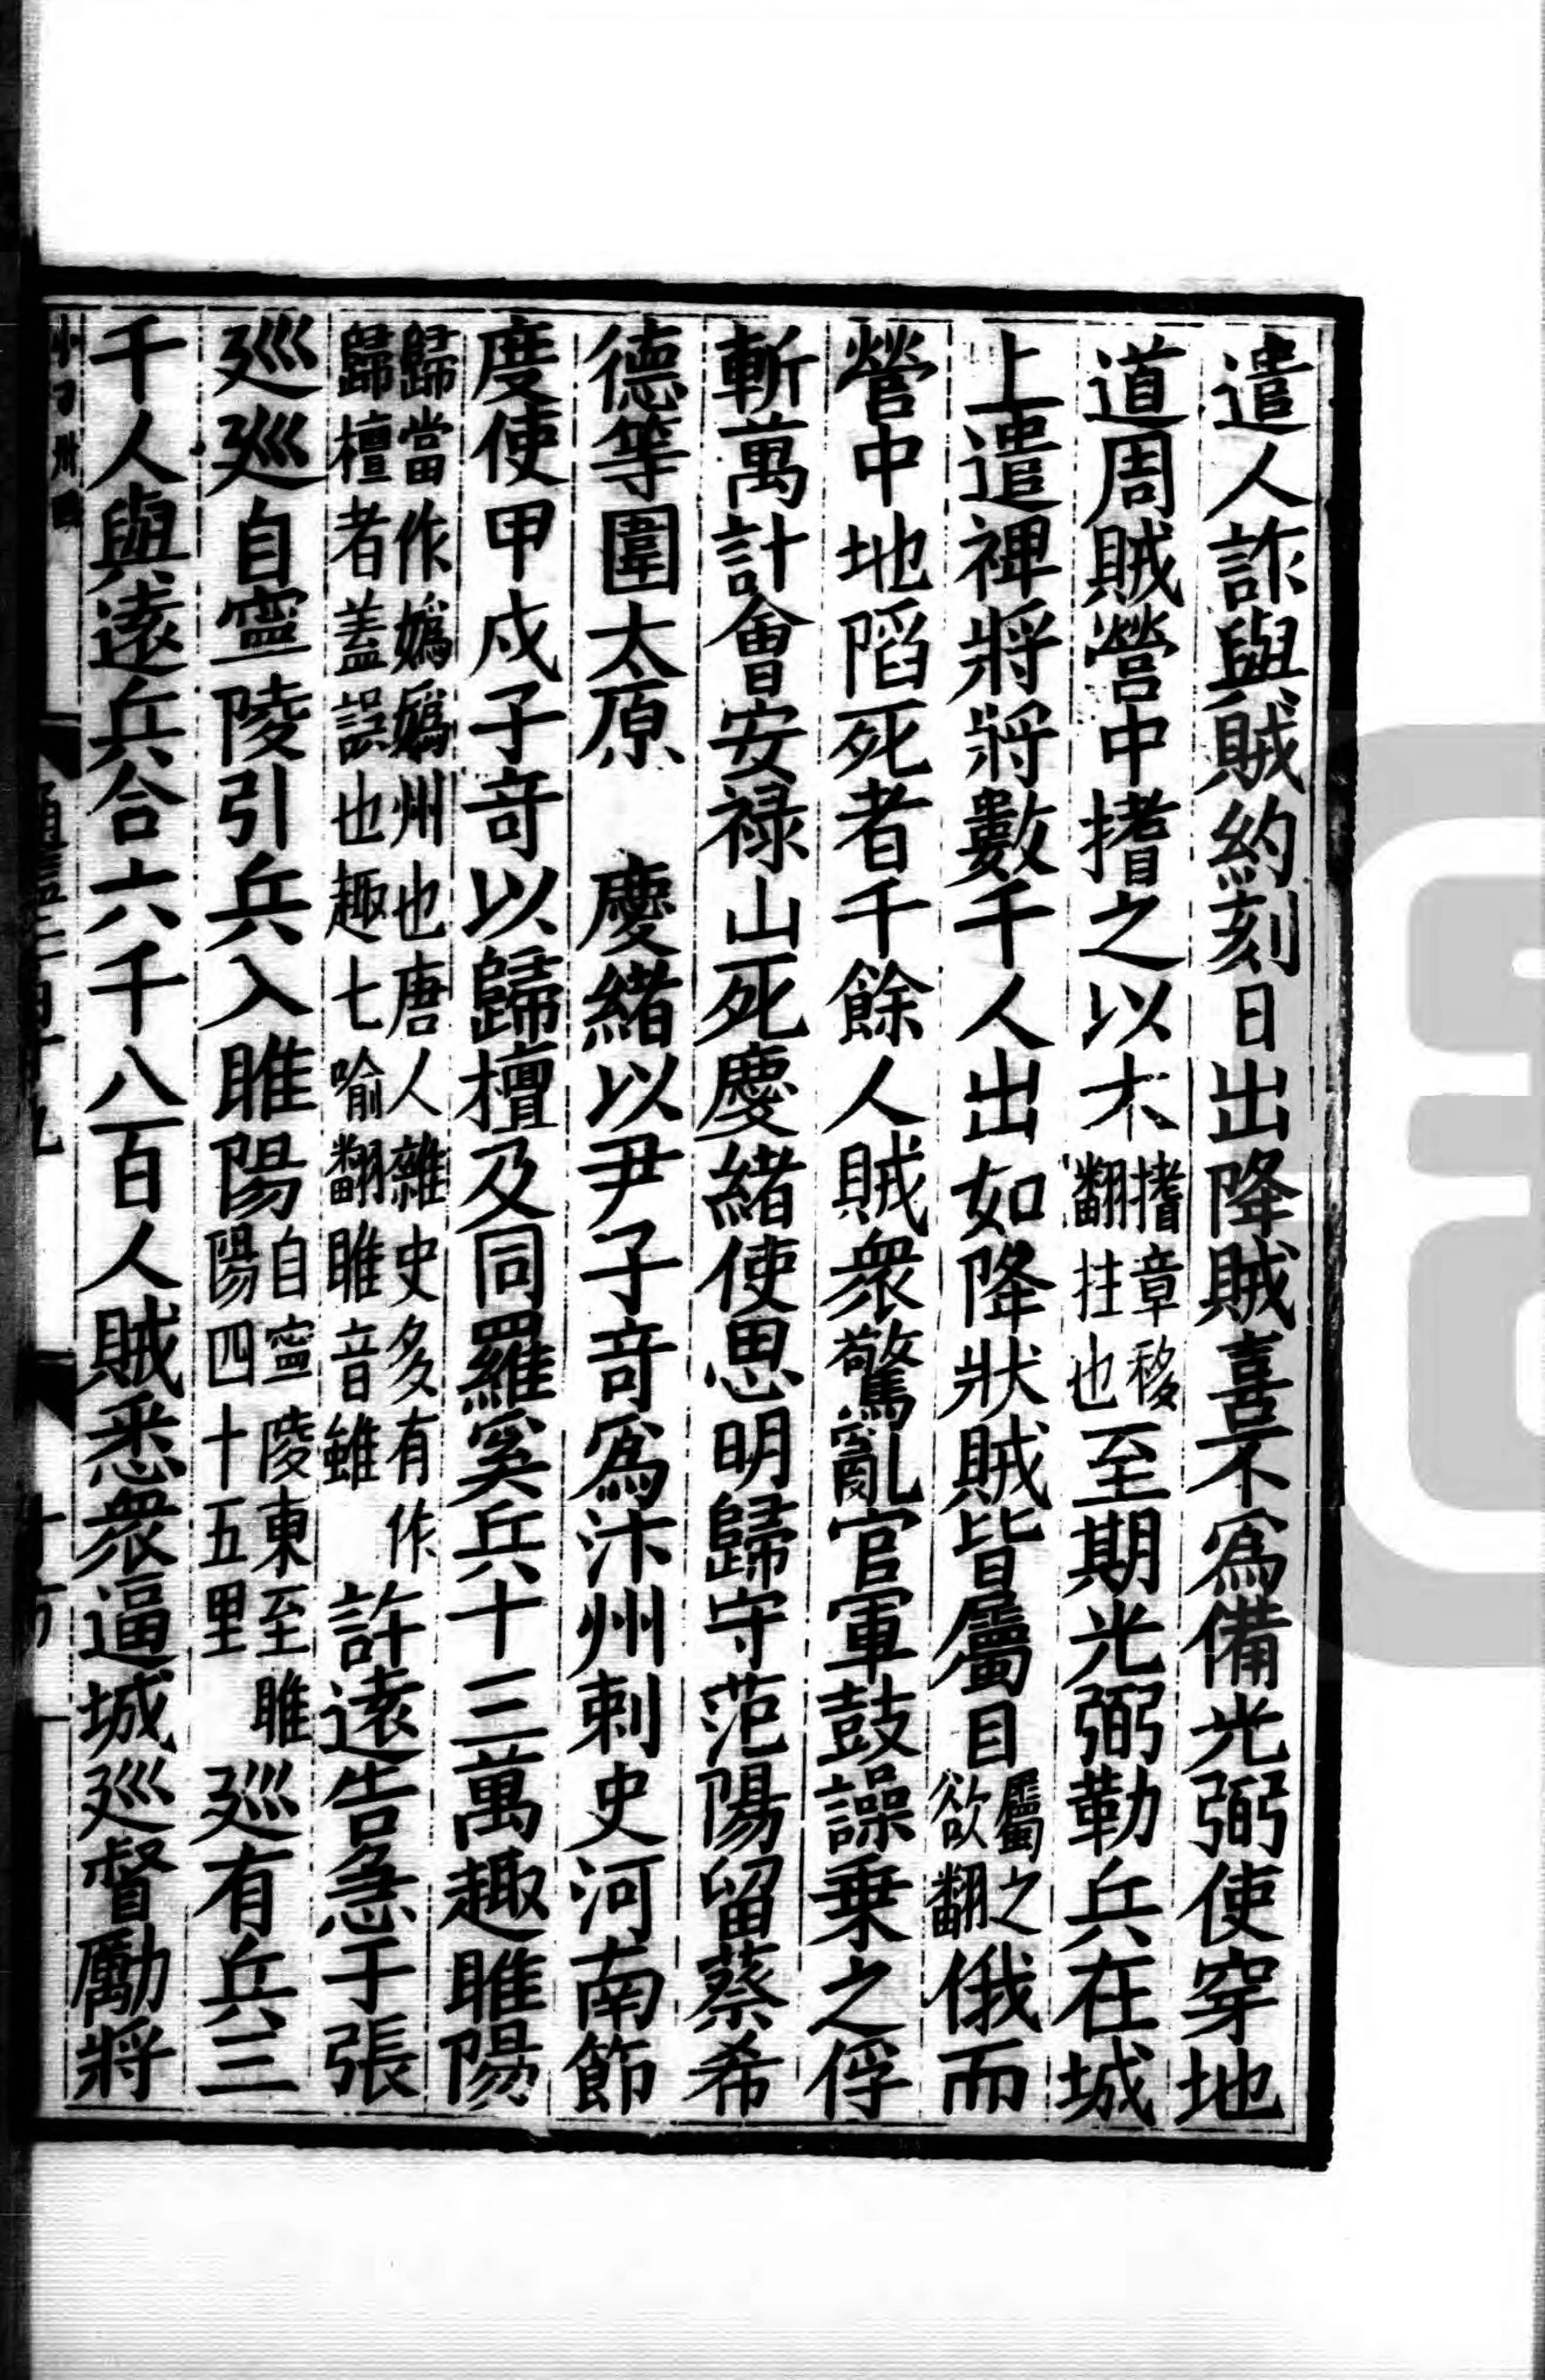 遣人詐與賊約刻日出降賊喜不爲備光弼使穿地
道周賊營中搘之以木搘章移翻拄也至期光弼勒兵在城
上遣禆將將數千人出如降狀賊皆屬目屬之欲翻俄而
營中地陷死者千餘人賊衆驚亂官軍鼓譟乗之俘
斬萬計會安禄山死慶緒使思明歸守范陽留蔡希
德等圍太原　慶緒以尹子竒爲汴州刺史河南節
度使甲戍子竒以歸檀及同羅奚兵十三萬趣睢陽
歸當作嬀嬀州也唐人雜史多有作歸檀者蓋誤也趣七喻翻睢音雖許遠告急于張
巡巡自寧陵引兵入睢陽自寧陵東至睢陽四十五里巡有兵三
千人與遠兵合六千八百人賊悉衆逼城巡督勵將